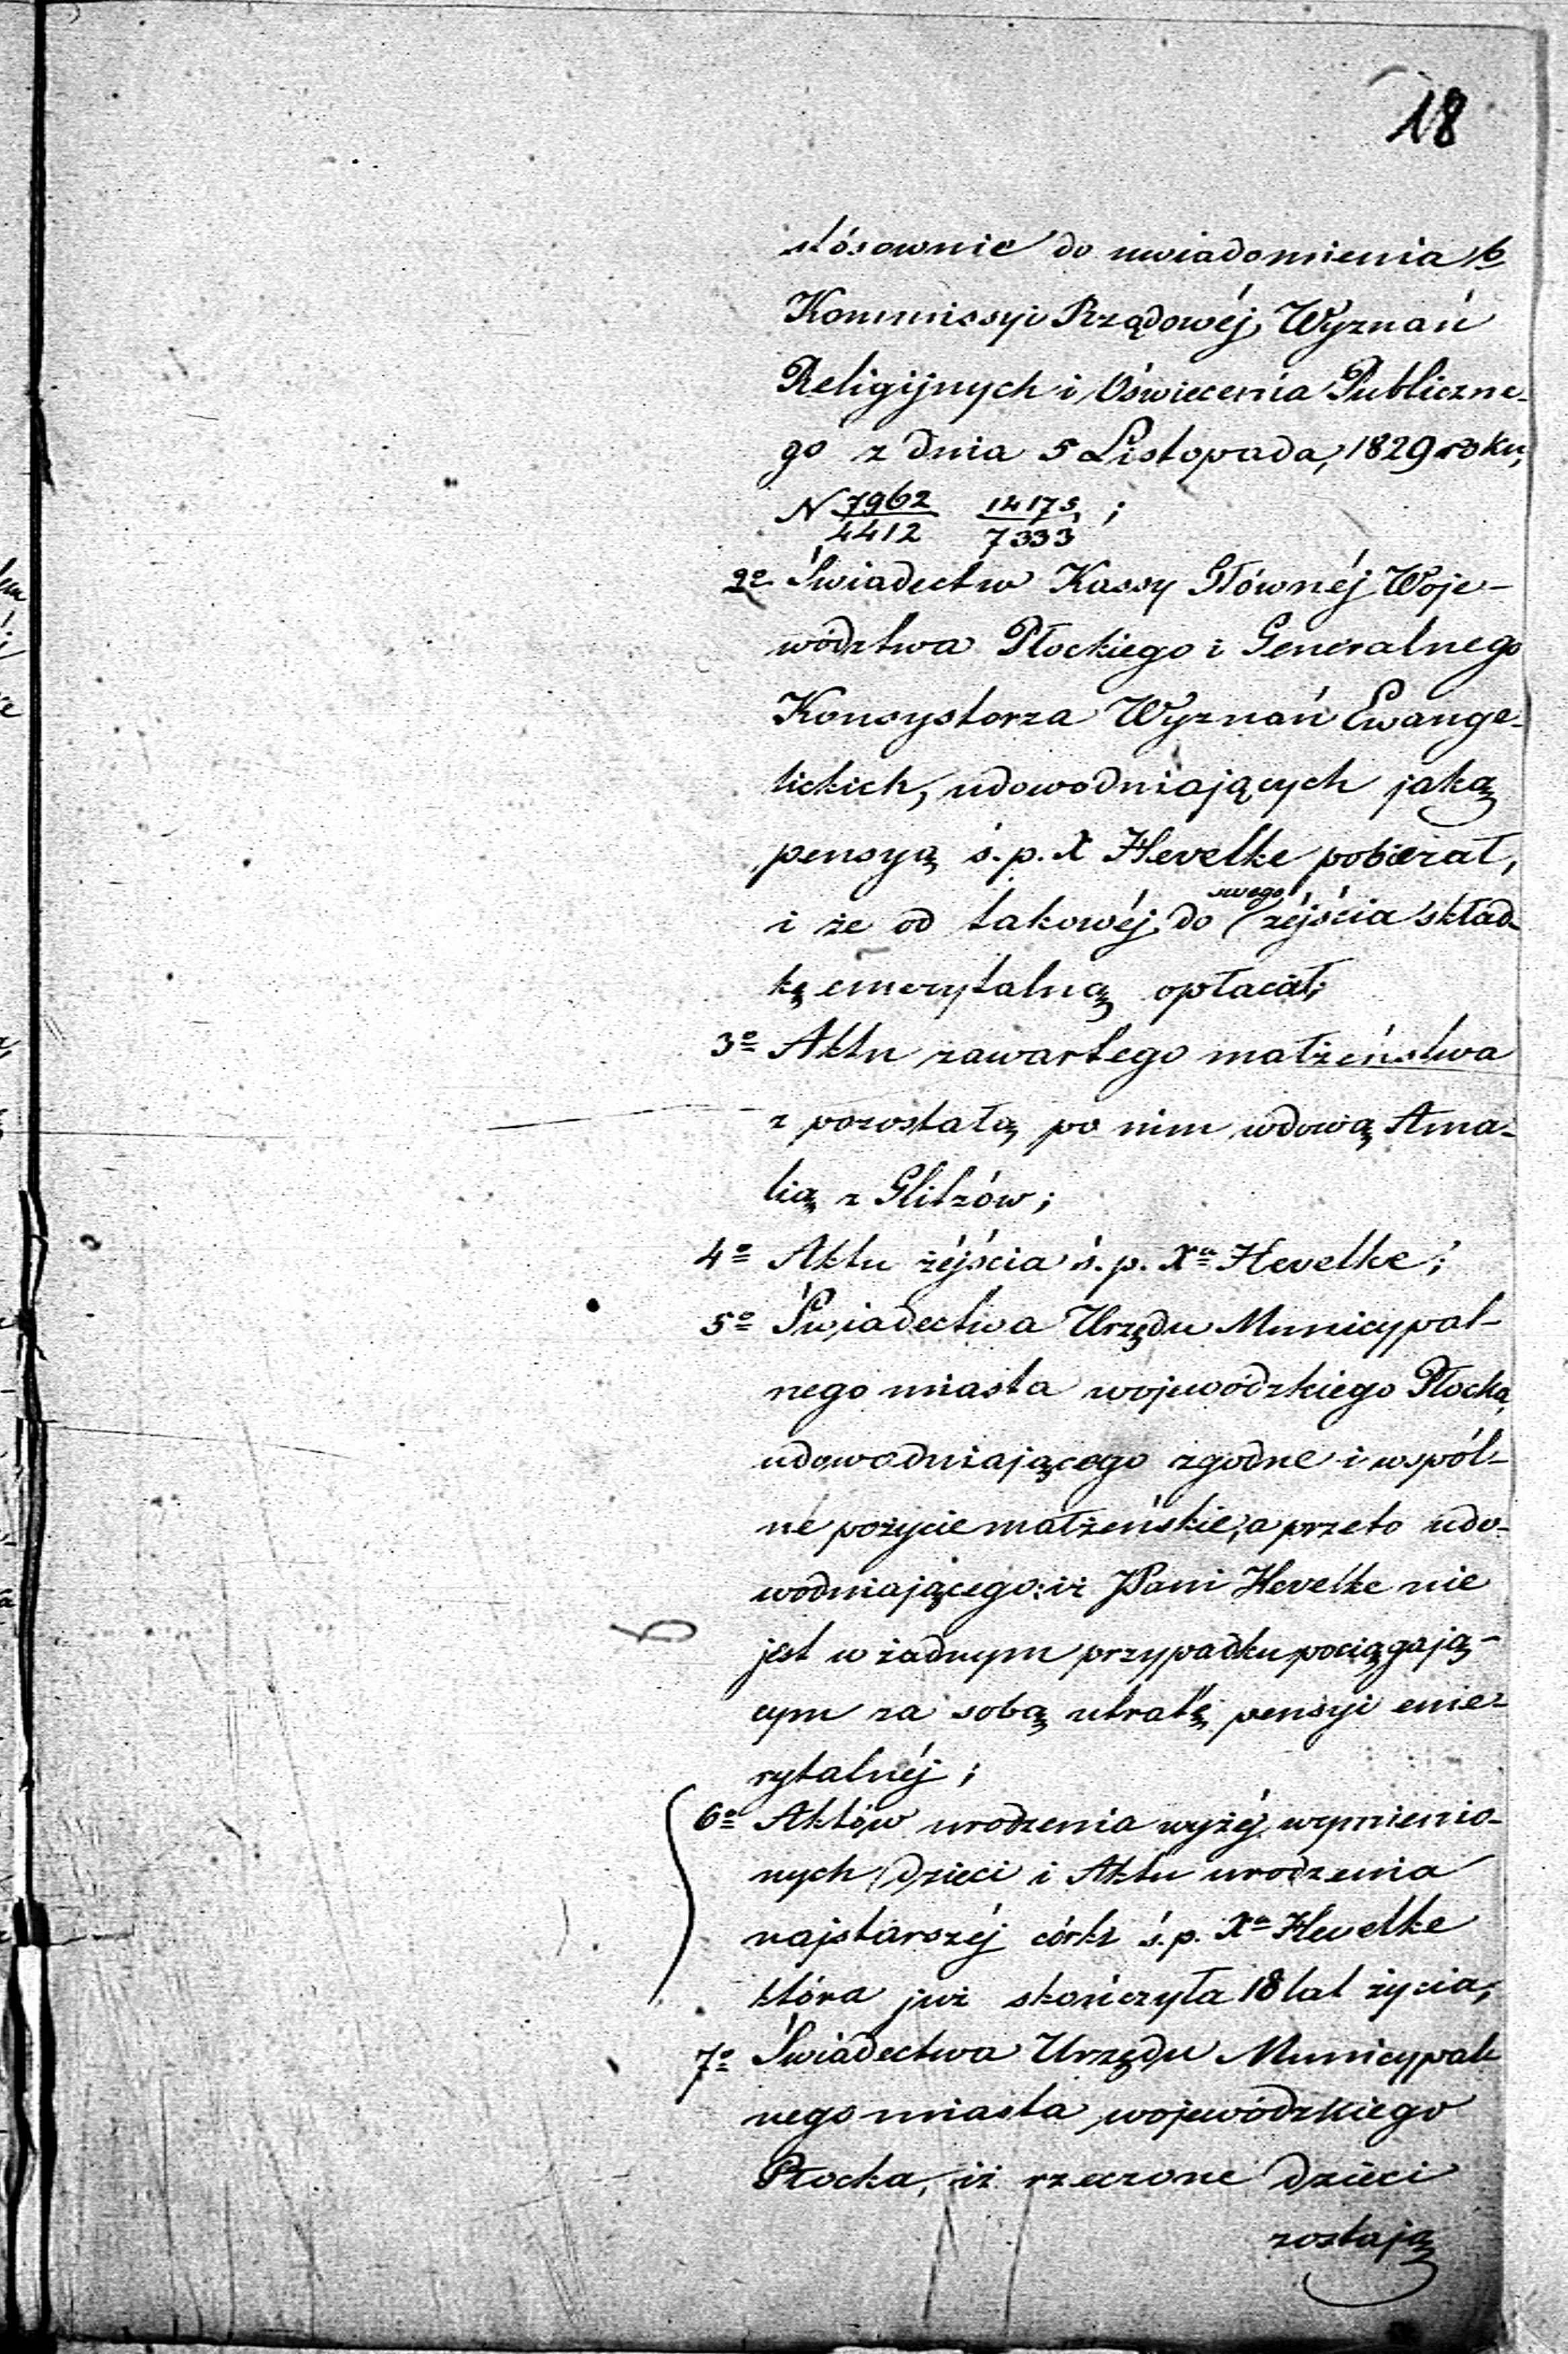 18
stósownie do uwiadomienia
Kommissyi Rządowéj Wyznań
Religijnych i Oświecenia Publiczne-
go z dnia 5 Listopada, 1829 roku,
N 7962/4412 14175/7333;
2º Świadectw Kassy Głównéj Woje-
wództwa Płockiego i Generalnego
Konsystorza Wyznań Ewange-
lickich, udowodniających jaką
pensyą ś.p. X Hevelke pobierał,
i że od takowéj do swego zéjścia skład-
kę emerytalną opłacał;
3º Aktu zawartego małżeństwa
z pozostałą po nim wdową Ama-
lią z Glitzów;
4º Aktu zéjścia ś.p. Xa Hevelke;
5º Świadectwa Urzędu Municypal-
nego miasta wojewódzkiego Płocka,
udowodniającego zgodne i wspól-
né pożycie małżeńskie, a przeto udo-
wodniającego: iż JPani Hevelke nie
jest w żadnym przypadku pociągają-
cym za sobą utratę pensyi eme-
rytalnéj;
6º Aktów urodzenia wyżéj wymienio-
nych dzieci i Aktu urodzenia
najstarszéj córki ś.p. Xa Hevelke
która już skończyła 18 lat życia;
7º Świadectwa Urzędu Municypal-
nego miasta wojewódzkiego
Płocka, iż rzeczone dzieci
zostają